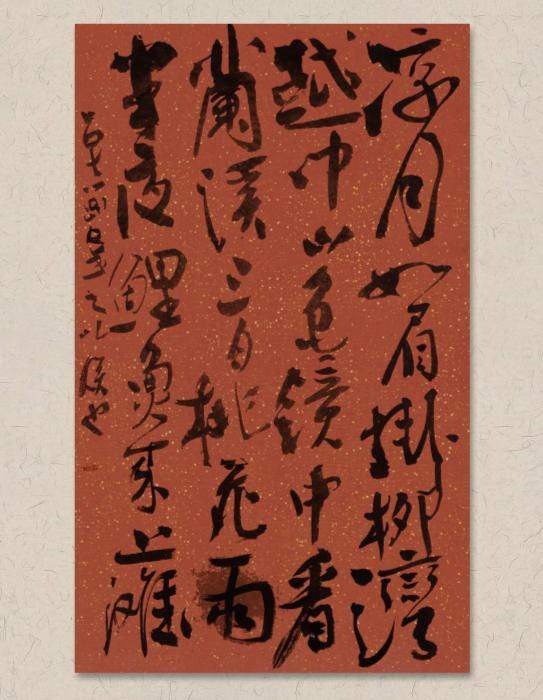 涼月如眉掛柳灣
越中山色鏡中看
蘭溪三日桃花雨
半夜鯉魚來上灘